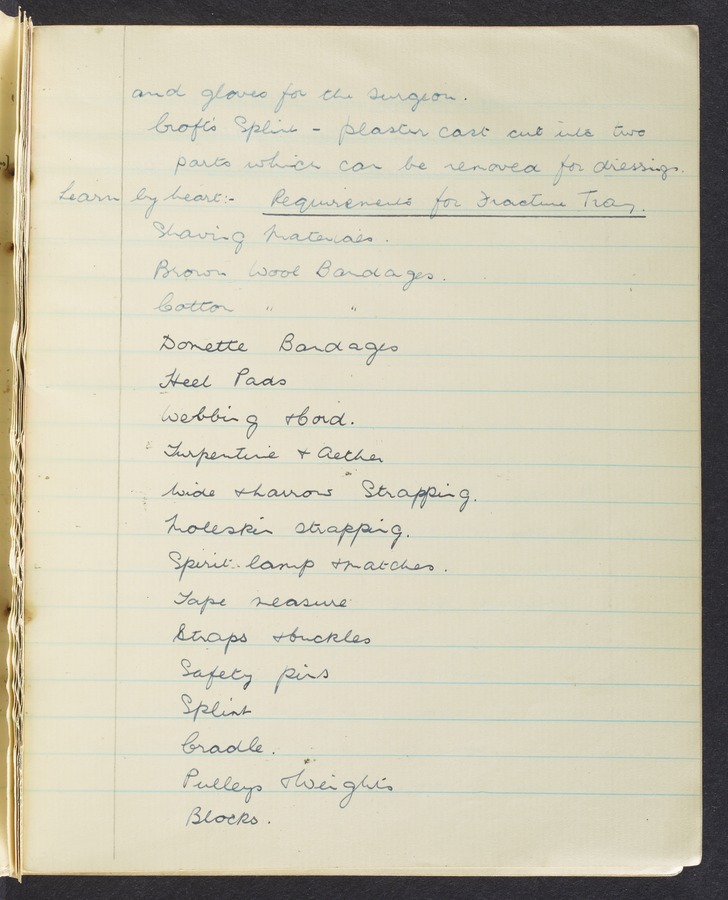 and gloves for the surgeon.
Croft's Splint - plaster cast cut into two
parts which can be removed for dressings.
Learn by heart:- Requirements for Fracture Tray.
Shaving Materials.
Brown Wool Bandages.
Cotton " "
Domette Bandages
Heel Pads
Webbing & Cord.
Turpentine & Aether
Wide & Narrow Strapping.
Moleskin strapping.
Spirit-lamp & matches.
Tape measure
Straps & buckles
Safety pins
Splint
Cradle.
Pulleys & Weights
Blocks.